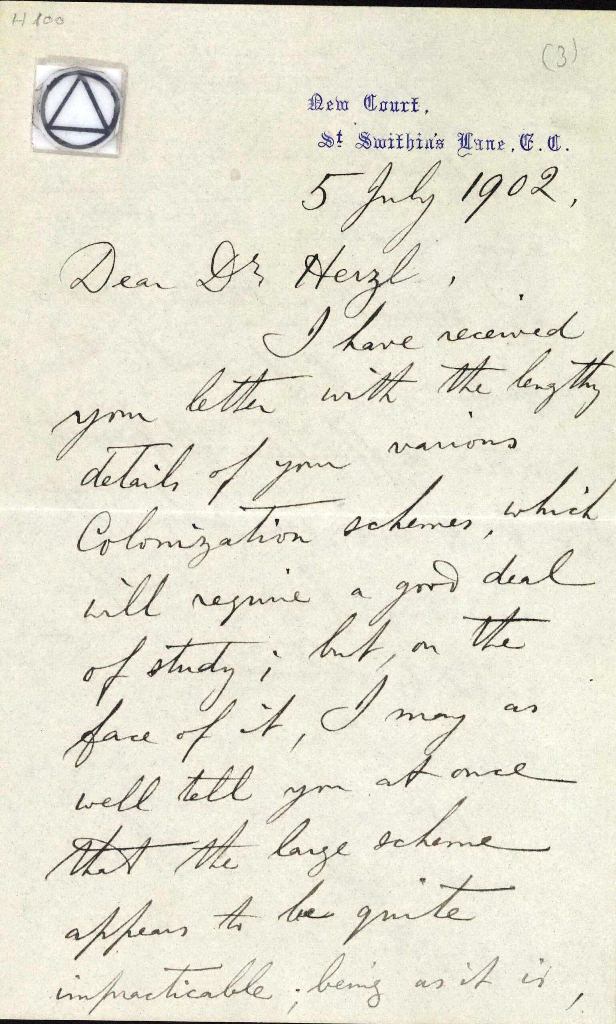 H 100
(3)
New Court,
St Swithin's Lane, E.C.
5 July 1902,
Dear Dr Herzl,
I have received
your letter with the lengthy
details of your various
Colonization schemes, which
will require a good deal
of study; but, on the
face of it, I may as
well tell you at once
that the large scheme
appears to be quite
impracticable; being as it is,